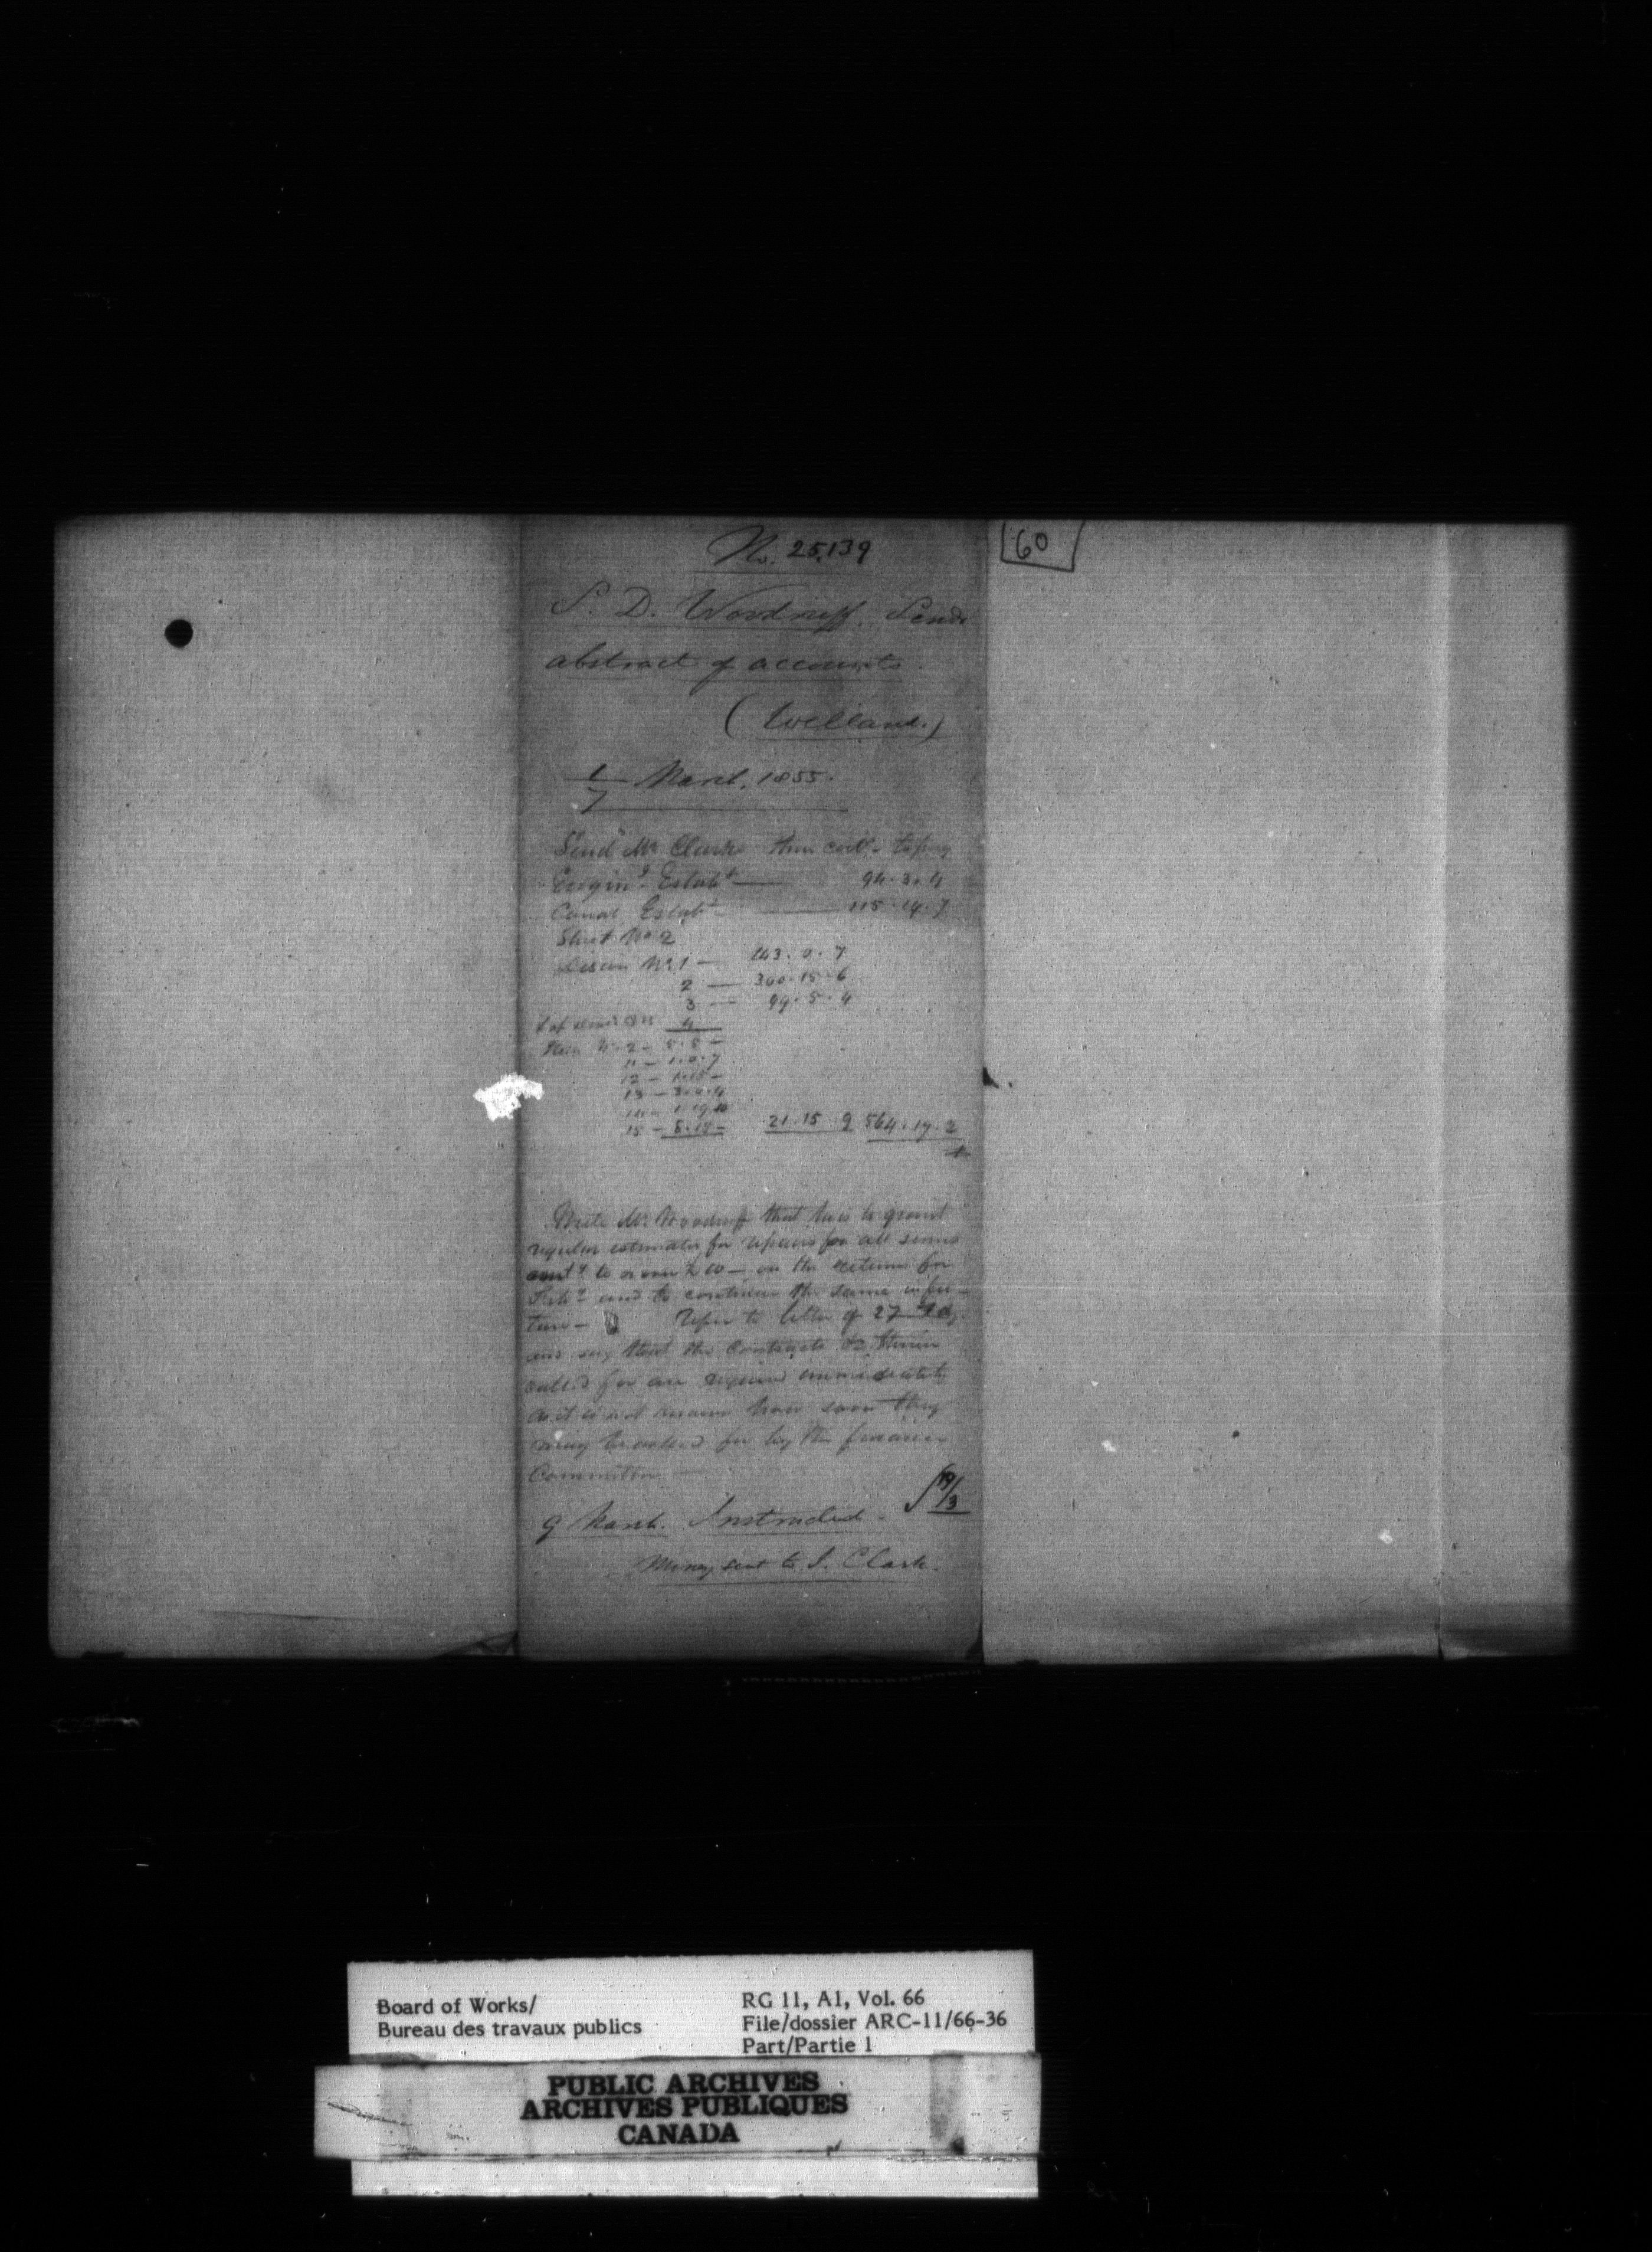 No. 25,139
60
S. D. Woodruff. Sends
abstract of accounts.
(Welland.)
1/7 March, 1855.
Send Mr Clark to pay
Engin.g Estabt — 94. 3. 4
Canal Estabt — 115. 14. 7
Sheet No 2
No. 1 —
2 — 360. 15. 6
3 — 99. 5. 4
4
2 - 5. 5 -
11 - 1. 0. 7
12 - 1. 15 -
13 -
15 - 8. 15 - 21. 15 9 564. 17. 2
Write Mr Woodruff that he is to
regular estimates for repairs for all sums
amt.g to or over £10 — on the returns for
and to continue the same in fu-
ture — Refer to letter of 27
and say that the Contracts therein
called for are required immediately
as it is not known how soon they
may be called for by the finance
Committee. —
19/3
9 March. Instructed.
Money sent to J. Clark.
Board of Works/
Bureau des travaux publics
RG 11, A1, Vol. 66
File/dossier ARC-11/66-36
Part/Partie 1
PUBLIC ARCHIVES
ARCHIVES PUBLIQUES
CANADA